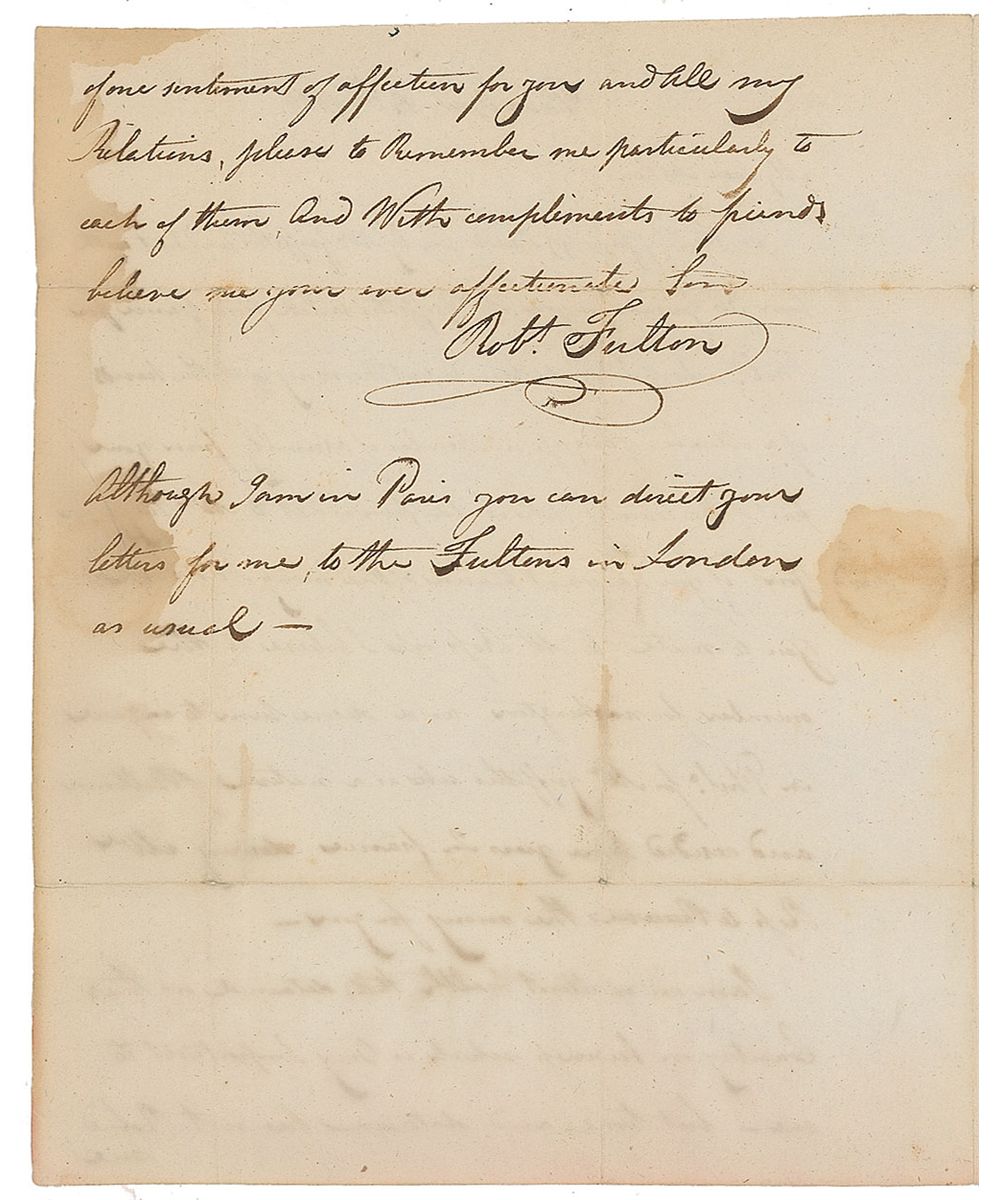 of one sentiment of affection for you and all my
Relations, please to Remember me particularly to
each of them, And With compliments to friends
believe me your ever affectionate Son
Robt. Fulton
Although I am in Paris you can direct your
letters for me, to the Fultons in London
as usual —